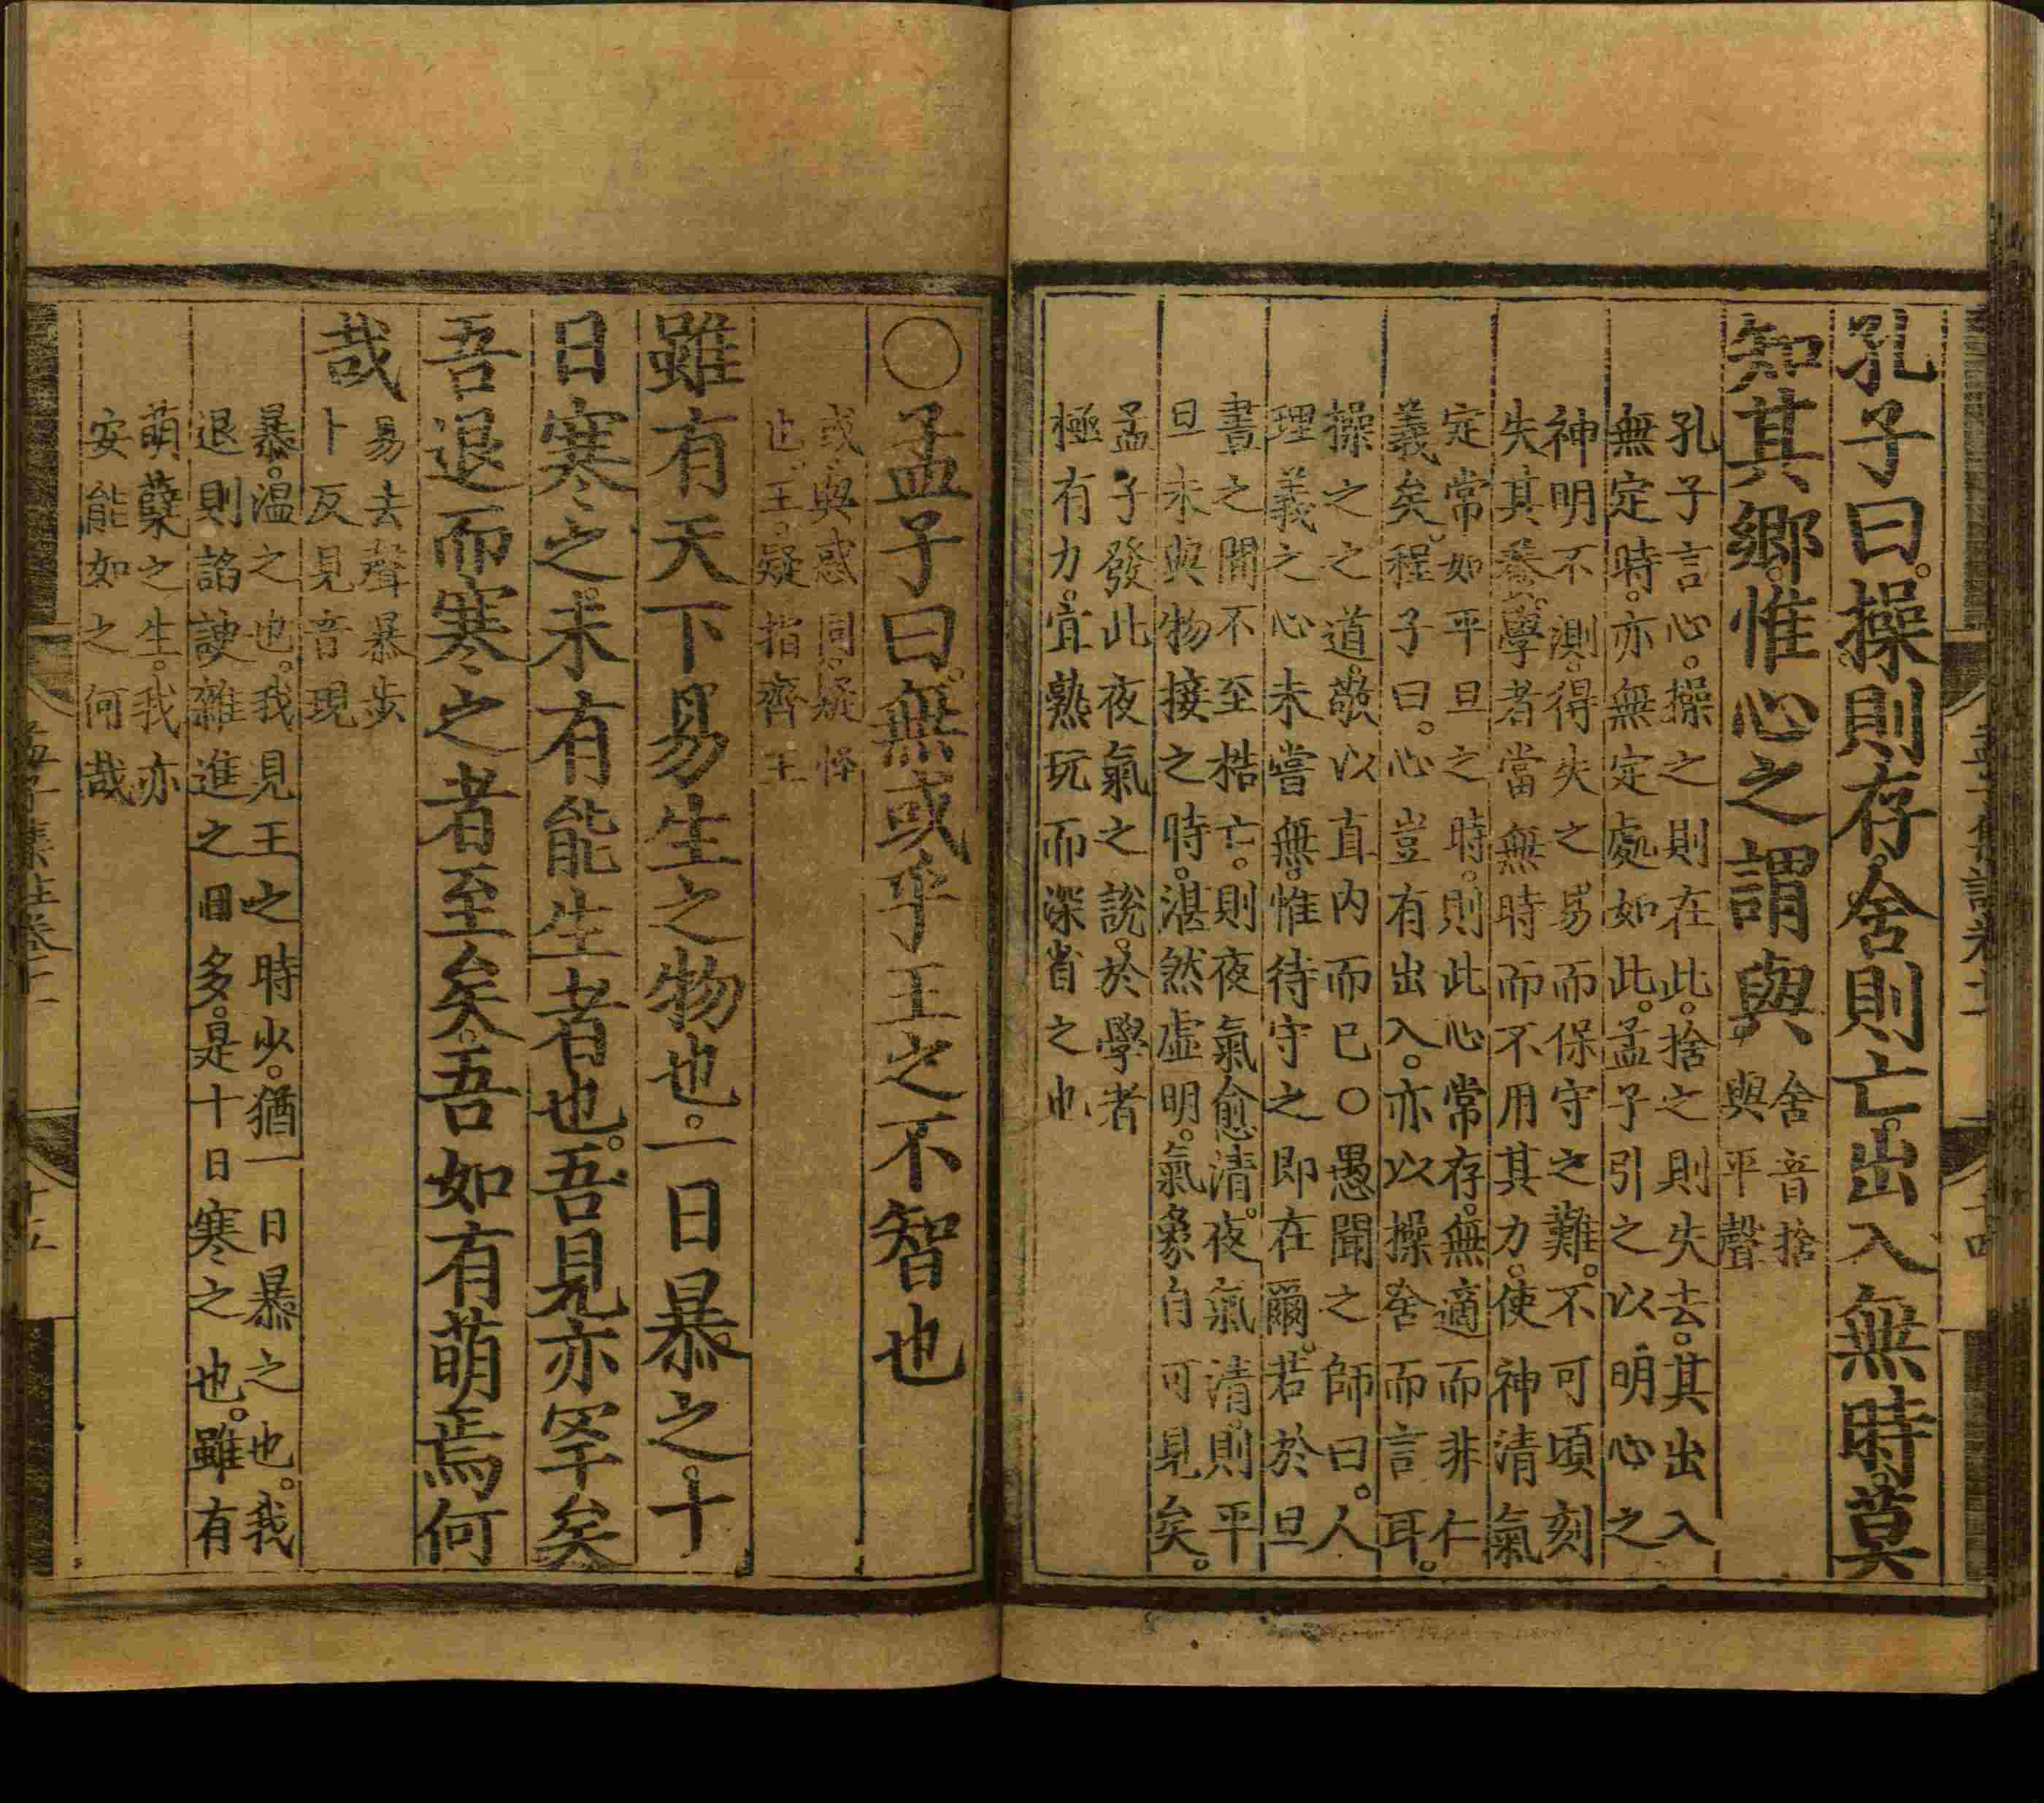 孔子曰。操則存。舍則亡。出入無時。莫
知其郷。惟心之謂與。
舍音捨
與平聲
孔子言心。操之則在此。捨之則失去。其出入
無定時。亦無定處如此。孟子引之以明心之
神明不測。得失之易而保守之難。不可頃刻
失其養。學者當無時而不用其力。使神清氣
定常如平旦之時。則此心常存。無適而非仁
義矣。程子曰。心豈有出入。亦以操舍而言耳。
操之之道。敬以直內而已○愚聞之師曰。人
理義之心未嘗無。惟待守之即在爾。若於旦
晝之間不至梏亡。則夜氣愈清。夜氣清。則平
旦未與物接之時。湛然虛明。氣象自可見矣。
孟子發此夜氣之說。於學者
極有力。宜熟玩而深省之也
○孟子曰。無或乎王之不智也
或與惑同。疑怪
也。王。疑指齊王
雖有天下易生之物也。一日暴之。十
日寒之。未有能生者也。吾見亦罕矣
吾退而寒之者至矣。吾如有萌焉何
哉
易去聲暴步
卜反見音現
暴。温之也。我見王之時少。猶一日暴之也。我
退則諂諛雜進之日多。是十日寒之也。雖有
萌蘖之生。我亦
安能如之何哉
孟子集註卷十一
十五